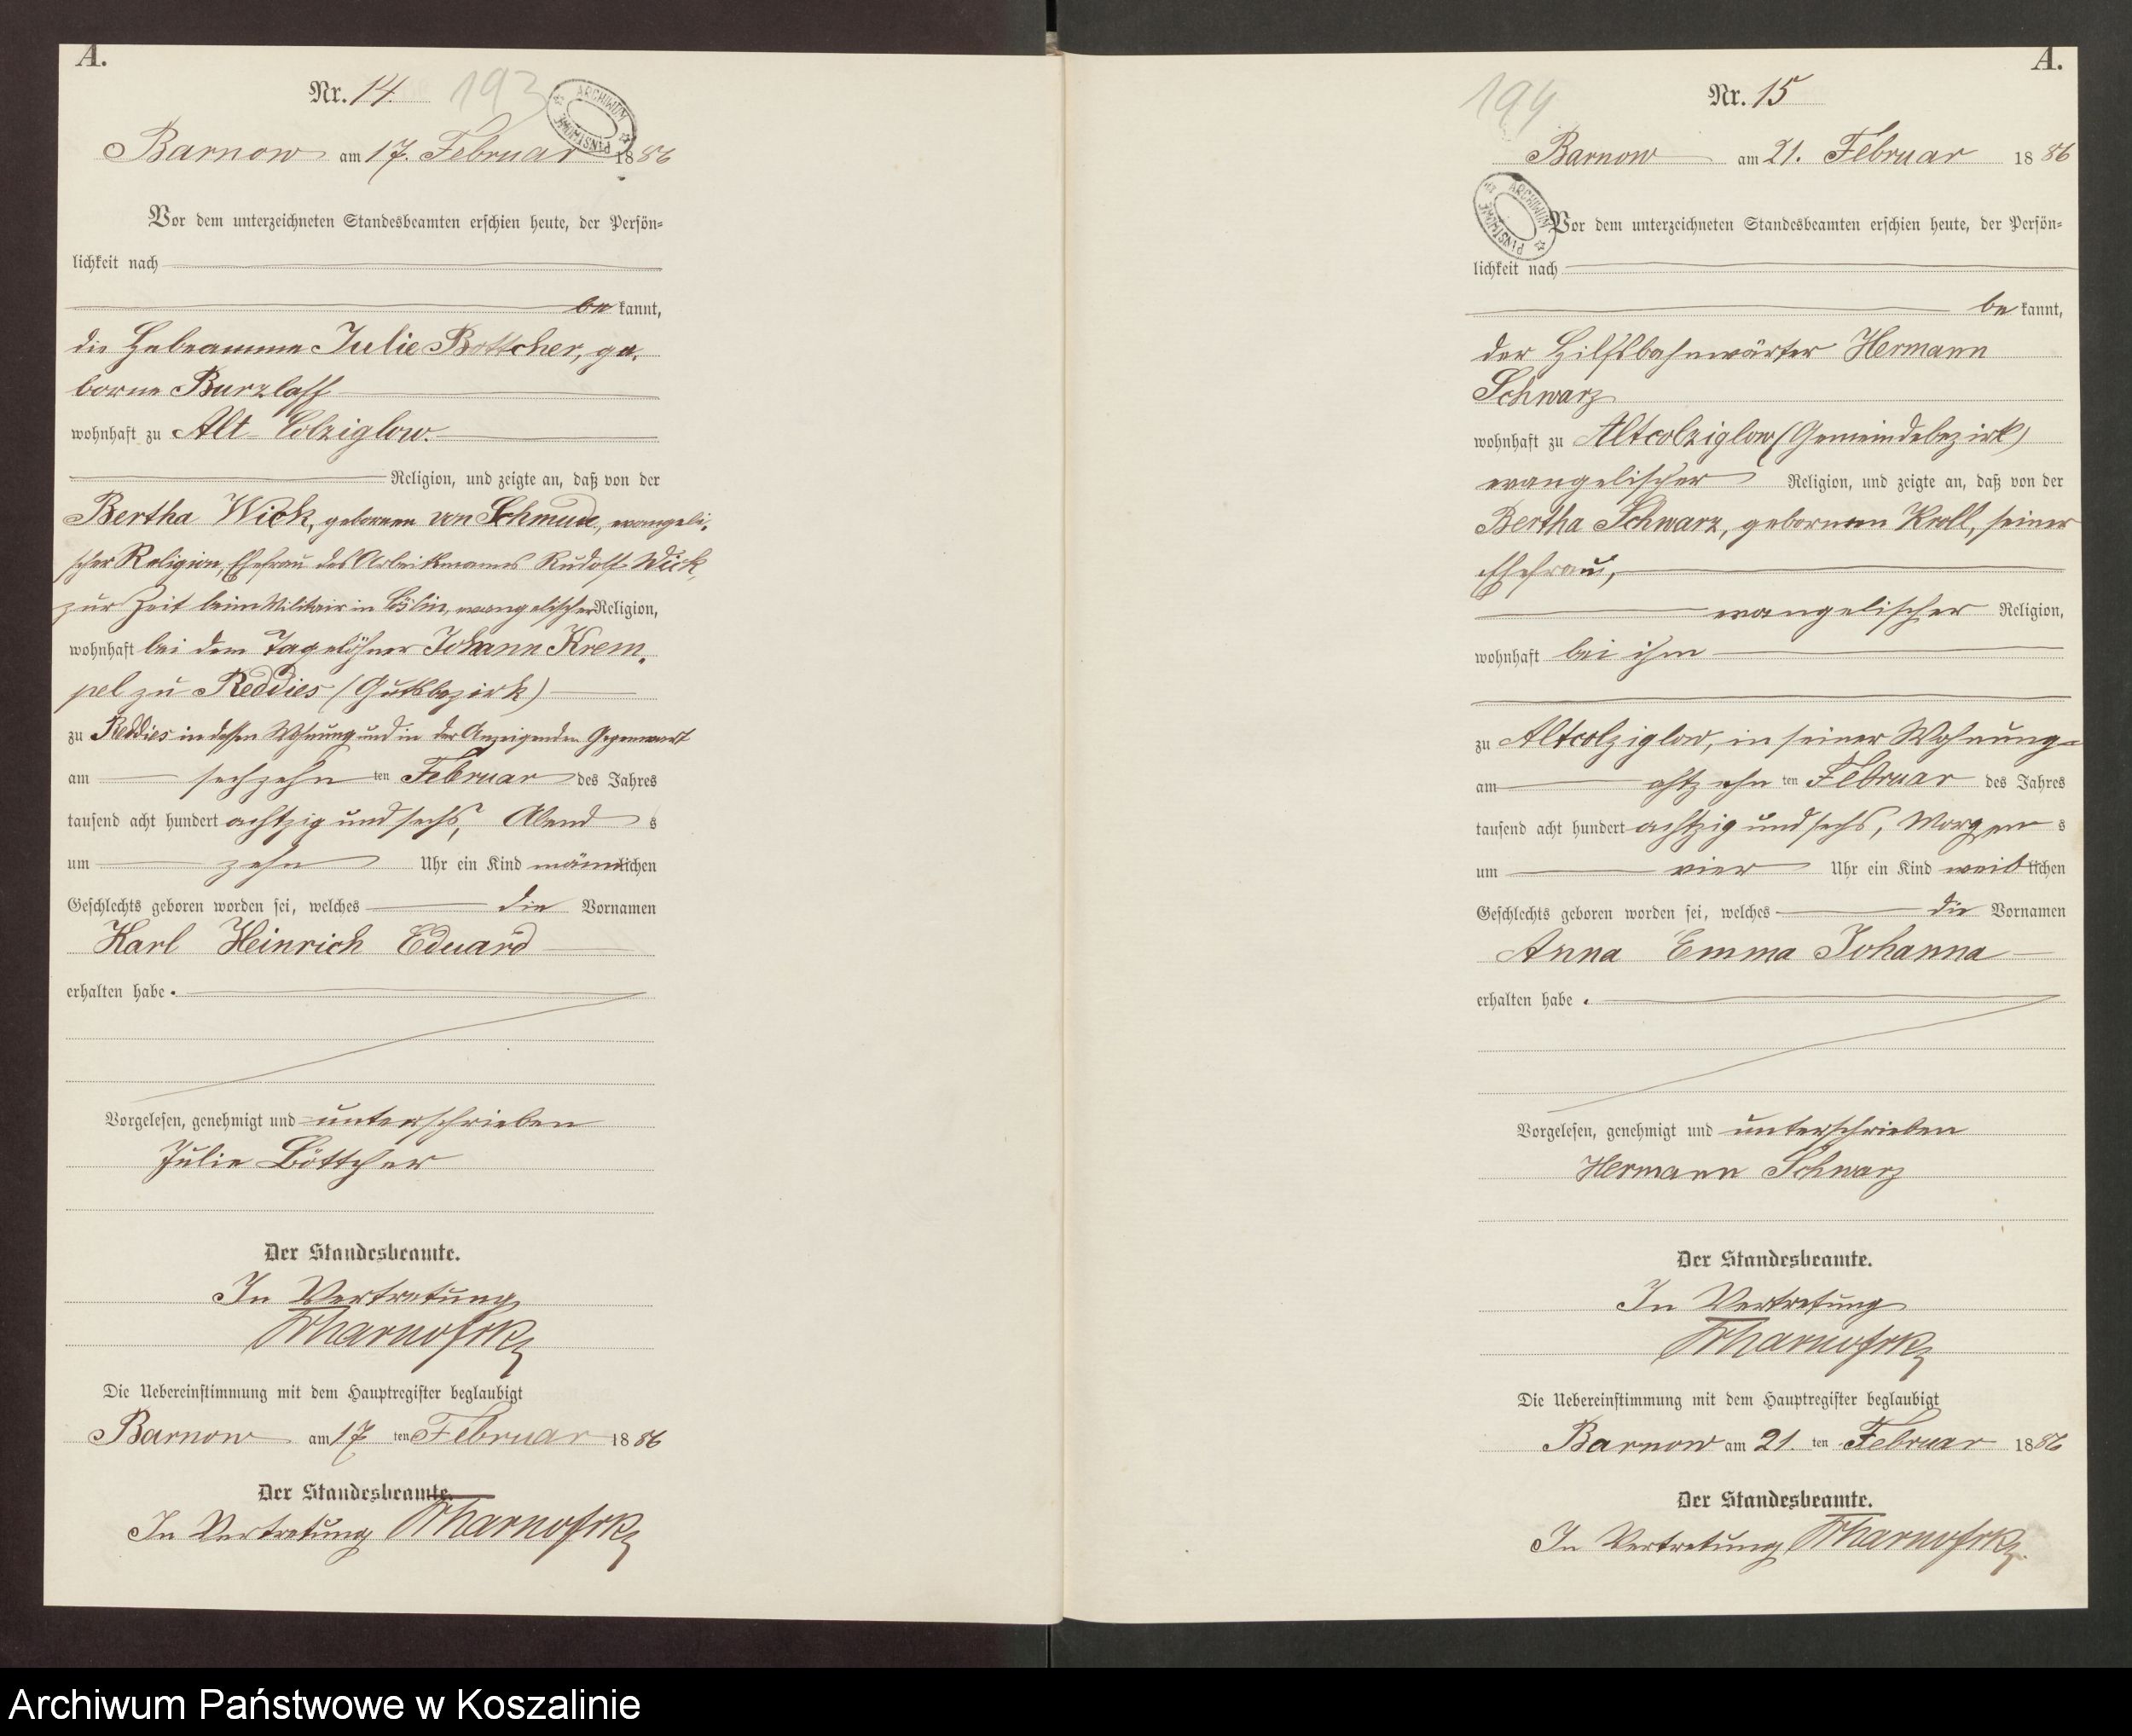 A.
Nr. 14.
193
ARCHIWUM PAŃSTWOWE
Barnow am 17. Februar 1886
Vor dem unterzeichneten Standesbeamten erschien heute, der Persön-
lichkeit nach
be kannt,
die Hebeamme Julie Böttcher, ge-
borne Burzlaff
wohnhaft zu Alt Colziglow.
Religion, und zeigte an, daß von der
Bertha Wick, gebornen von Schmude, evangeli-
scher Religion, Ehefrau des Arbeitsmannes Rudolf Wick,
zur Zeit beim Militair in Cöslin, evangelischer Religion,
wohnhaft bei dem Tagelöhner Johann Krem-
pel zu Reddies (Gutsbezirk)
zu Reddies in dessen Wohnung und in der Anzeigenden Gegenwart
am sechzehn ten Februar des Jahres
tausend acht hundert achtzig und sechs, Abend s
um zehn Uhr ein Kind männlichen
Geschlechts geboren worden sei, welches die Vornamen
Karl Heinrich Eduard
erhalten habe.
Vorgelesen, genehmigt und unterschrieben
Julie Böttcher
Der Standesbeamte.
In Vertretung
Die Uebereinstimmung mit dem Hauptregister beglaubigt
Barnow am 17 ten Februar 1886
Der Standesbeamte.
In Vertretung
A.
Nr. 15
194
ARCHIWUM PAŃSTWOWE
Barnow am 21. Februar 1886
Vor dem unterzeichneten Standesbeamten erschien heute, der Persön-
lichkeit nach
be kannt,
der Hilfsbahnwärter Hermann
Schwarz
wohnhaft zu Altcolziglow (Gemeindebezirk)
evangelischer Religion, und zeigte an, daß von der
Bertha Schwarz, gebornen Kroll, seiner
Ehefrau,
evangelischer Religion,
wohnhaft bei ihm
zu Altcolziglow, in seiner Wohnung
am achtzehn ten Februar des Jahres
tausend acht hundert achtzig und sechs, Morgen s
um vier Uhr ein Kind weiblichen
Geschlechts geboren worden sei, welches die Vornamen
Anna Emma Johanna
erhalten habe.
Vorgelesen, genehmigt und unterschrieben
Hermann Schwarz
Der Standesbeamte.
In Vertretung
Die Uebereinstimmung mit dem Hauptregister beglaubigt
Barnow am 21. ten Februar 1886
Der Standesbeamte.
In Vertretung
Archiwum Państwowe w Koszalinie